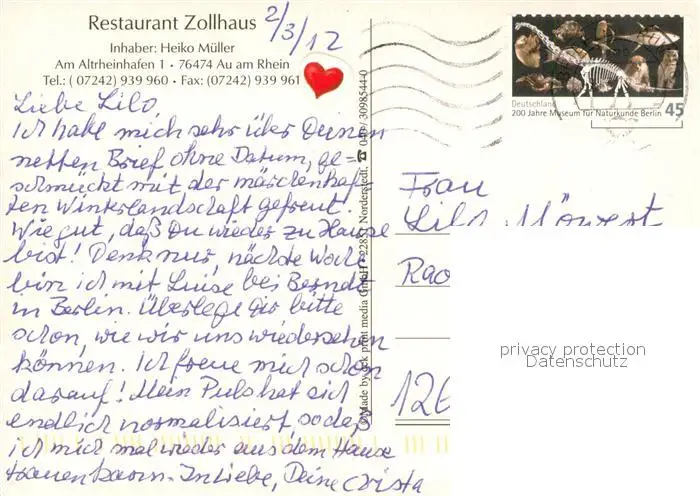 Restaurant Zollhaus
2/3/12
Inhaber: Heiko Müller
Am Altrheinhafen 1 • 76474 Au am Rhein
Tel.: ( 07242) 939 960 • Fax: (07242) 939 961
Liebe Lilo
Ich habe mich sehr über Deinen
netten Brief ohne Datum, ge-
schmückt mit der märchenhaf-
ten Winterlandschaft gefreut!
Wie gut, daß Du wieder zu Hause
bist! Denk nur, nächste Woch
bin ich mit Luise bei Berndt
in Berlin. Überlege Dir bitte
schon, wie wir uns wiedersehen
können. Ich freue mich schon
darauf! Mein Puls hat sich
endlich normalisiert, so daß
ich mich mal wieder aus dem Hause
trauen kann. In Liebe, Deine Christa
©Made by deck print media GmbH • 22851 Norderstedt, ☎ 040 / 3098544-0
Deutschland
200 Jahre Museum für Naturkunde Berlin
45
Frau
Lilo
Rao
126
privacy protection
Datenschutz